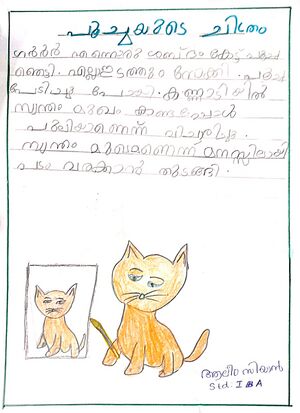 പൂച്ചയുടെ ചിത്രം
ഗർർർ എന്നൊരു ശബ്ദം കേട്ട് പൂച്ച
ഞെട്ടി. എല്ലാഇടത്തും നോക്കി. പൂച്ച
പേടിച്ചു പോയി. കണ്ണാടിയിൽ
സ്വന്തം മുഖം കണ്ടപ്പോൾ
പുലിയാണെന്ന് വിചാരിച്ചു.
സ്വന്തം മുഖമാണെന്ന് മനസ്സിലായി
പടം വരക്കാൻ തുടങ്ങി.
സിയാൻ
Std: I BA